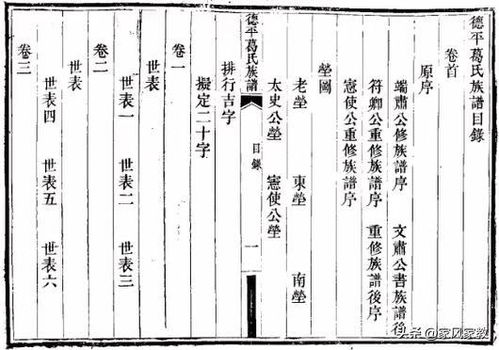 德平葛氏族譜目錄
卷首
原序
端肅公修族譜序　文肅公書族譜後
符卿公重修族譜序　重修族譜後序
憲使公重修族譜序
塋圖
老塋　東塋　南塋
太史公塋　憲使公塋
德平葛氏族譜　目錄　一
排行吉字
擬定二十字
卷一
世表
世表一　世表二　世表三
卷二
世表四　世表五　世表六
卷三
头条 @家风家教